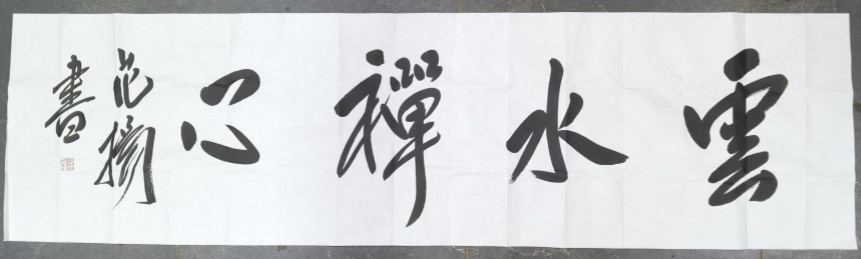 雲水禪心
范
書